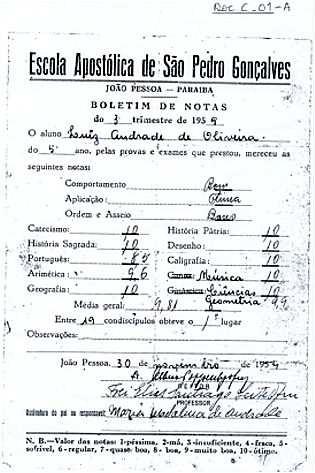 DOC C-01-A
Escola Apostólica de São Pedro Gonçalves
JOÃO PESSOA — PARAIBA
BOLETIM DE NOTAS
do 3 trimestre de 1959
O aluno Luiz Andrade de Oliveira
do 5º ano, pelas provas e exames que prestou, mereceu as
seguintes notas:
Comportamento
Aplicação:
Ordem e Asseio
Catecismo: 10 História Pátria: 10
História Sagrada: 10 Desenho: 10
Português: 8,5 Caligrafia: 10
Arimética: 9,6 Música 10
Geografia: 10 Ciências 10
Geometria 9,9
Média geral: 9,81
Entre 19 condiscípulos obteve o 1º lugar
Observações:
João Pessoa, 30 de novembro de 1959
REITOR
Frei Elias
PROFESSOR
Assinatura do pai ou responsavel: Maria de Andrade
N. B.—Valor das notas: 1-péssima, 2-má, 3-insuficiente, 4-fraca, 5-
sofrivel, 6-regular, 7-quase boa, 8-boa, 9-muito boa, 10-ótimo.